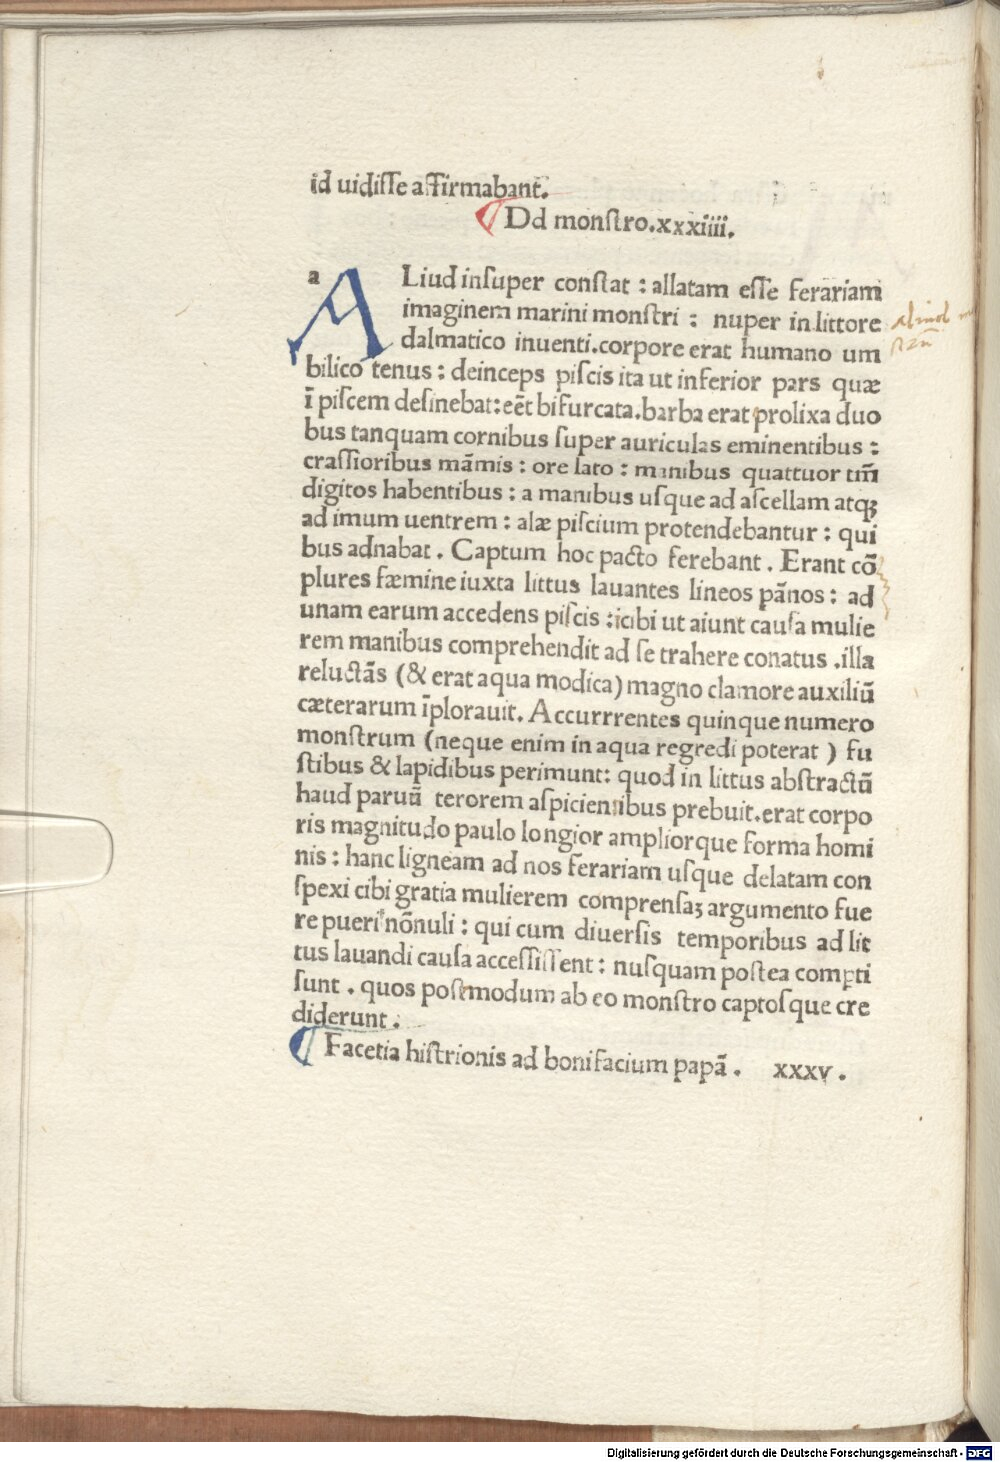 id uidiſſe affirmabant.
¶ Dd monſtro.xxxiiii.
a ALiud inſuper conſtat : allatam eſſe ferariam
imaginem marini monſtri : nuper in littore
dalmatico inuenti.corpore erat humano um
bilico tenus : deinceps piſcis ita ut inferior pars quæ
ī piſcem deſinebat:eēt bifurcata.barba erat prolixa duo
bus tanquam cornibus ſuper auriculas eminentibus :
craſſioribus māmis : ore lato : manibus quattuor tm̄
digitos habentibus : a manibus uſque ad aſcellam atqꝫ
ad imum uentrem : alæ piſcium protendebantur : qui
bus adnabat . Captum hoc pacto ferebant . Erant cō
plures fæmine iuxta littus lauantes lineos pānos : ad
unam earum accedens piſcis :icibi ut aiunt cauſa mulie
rem manibus comprehendit ad ſe trahere conatus .illa
reluctās (& erat aqua modica) magno clamore auxiliū
cæterarum īplorauit. Accurrrentes quinque numero
monſtrum (neque enim in aqua regredi poterat ) fu
ſtibus & lapidibus perimunt: quod in littus abſtractū
haud paruū terorem aſpicientibus prebuit.erat corpo
ris magnitudo paulo longior ampliorque forma homi
nis : hanc ligneam ad nos ferariam uſque delatam con
ſpexi cibi gratia mulierem comprenſaꝫ argumento fue
re pueri nōnuli : qui cum diuerſis temporibus ad lit
tus lauandi cauſa acceſſiſſent : nuſquam poſtea comꝑti
ſunt . quos poſtmodum ab eo monſtro captoſque cre
diderunt .
¶ Facetia hiſtrionis ad bonifacium papā . xxxv .
Digitalisierung gefördert durch die Deutsche Forschungsgemeinschaft - DFG